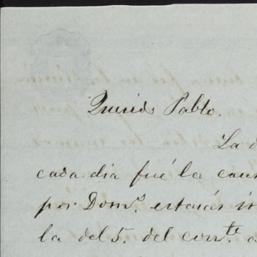 Querido Pablo.
La
cada dia fué la cau
por Dom.º estarás i
la del 5. del con.te a